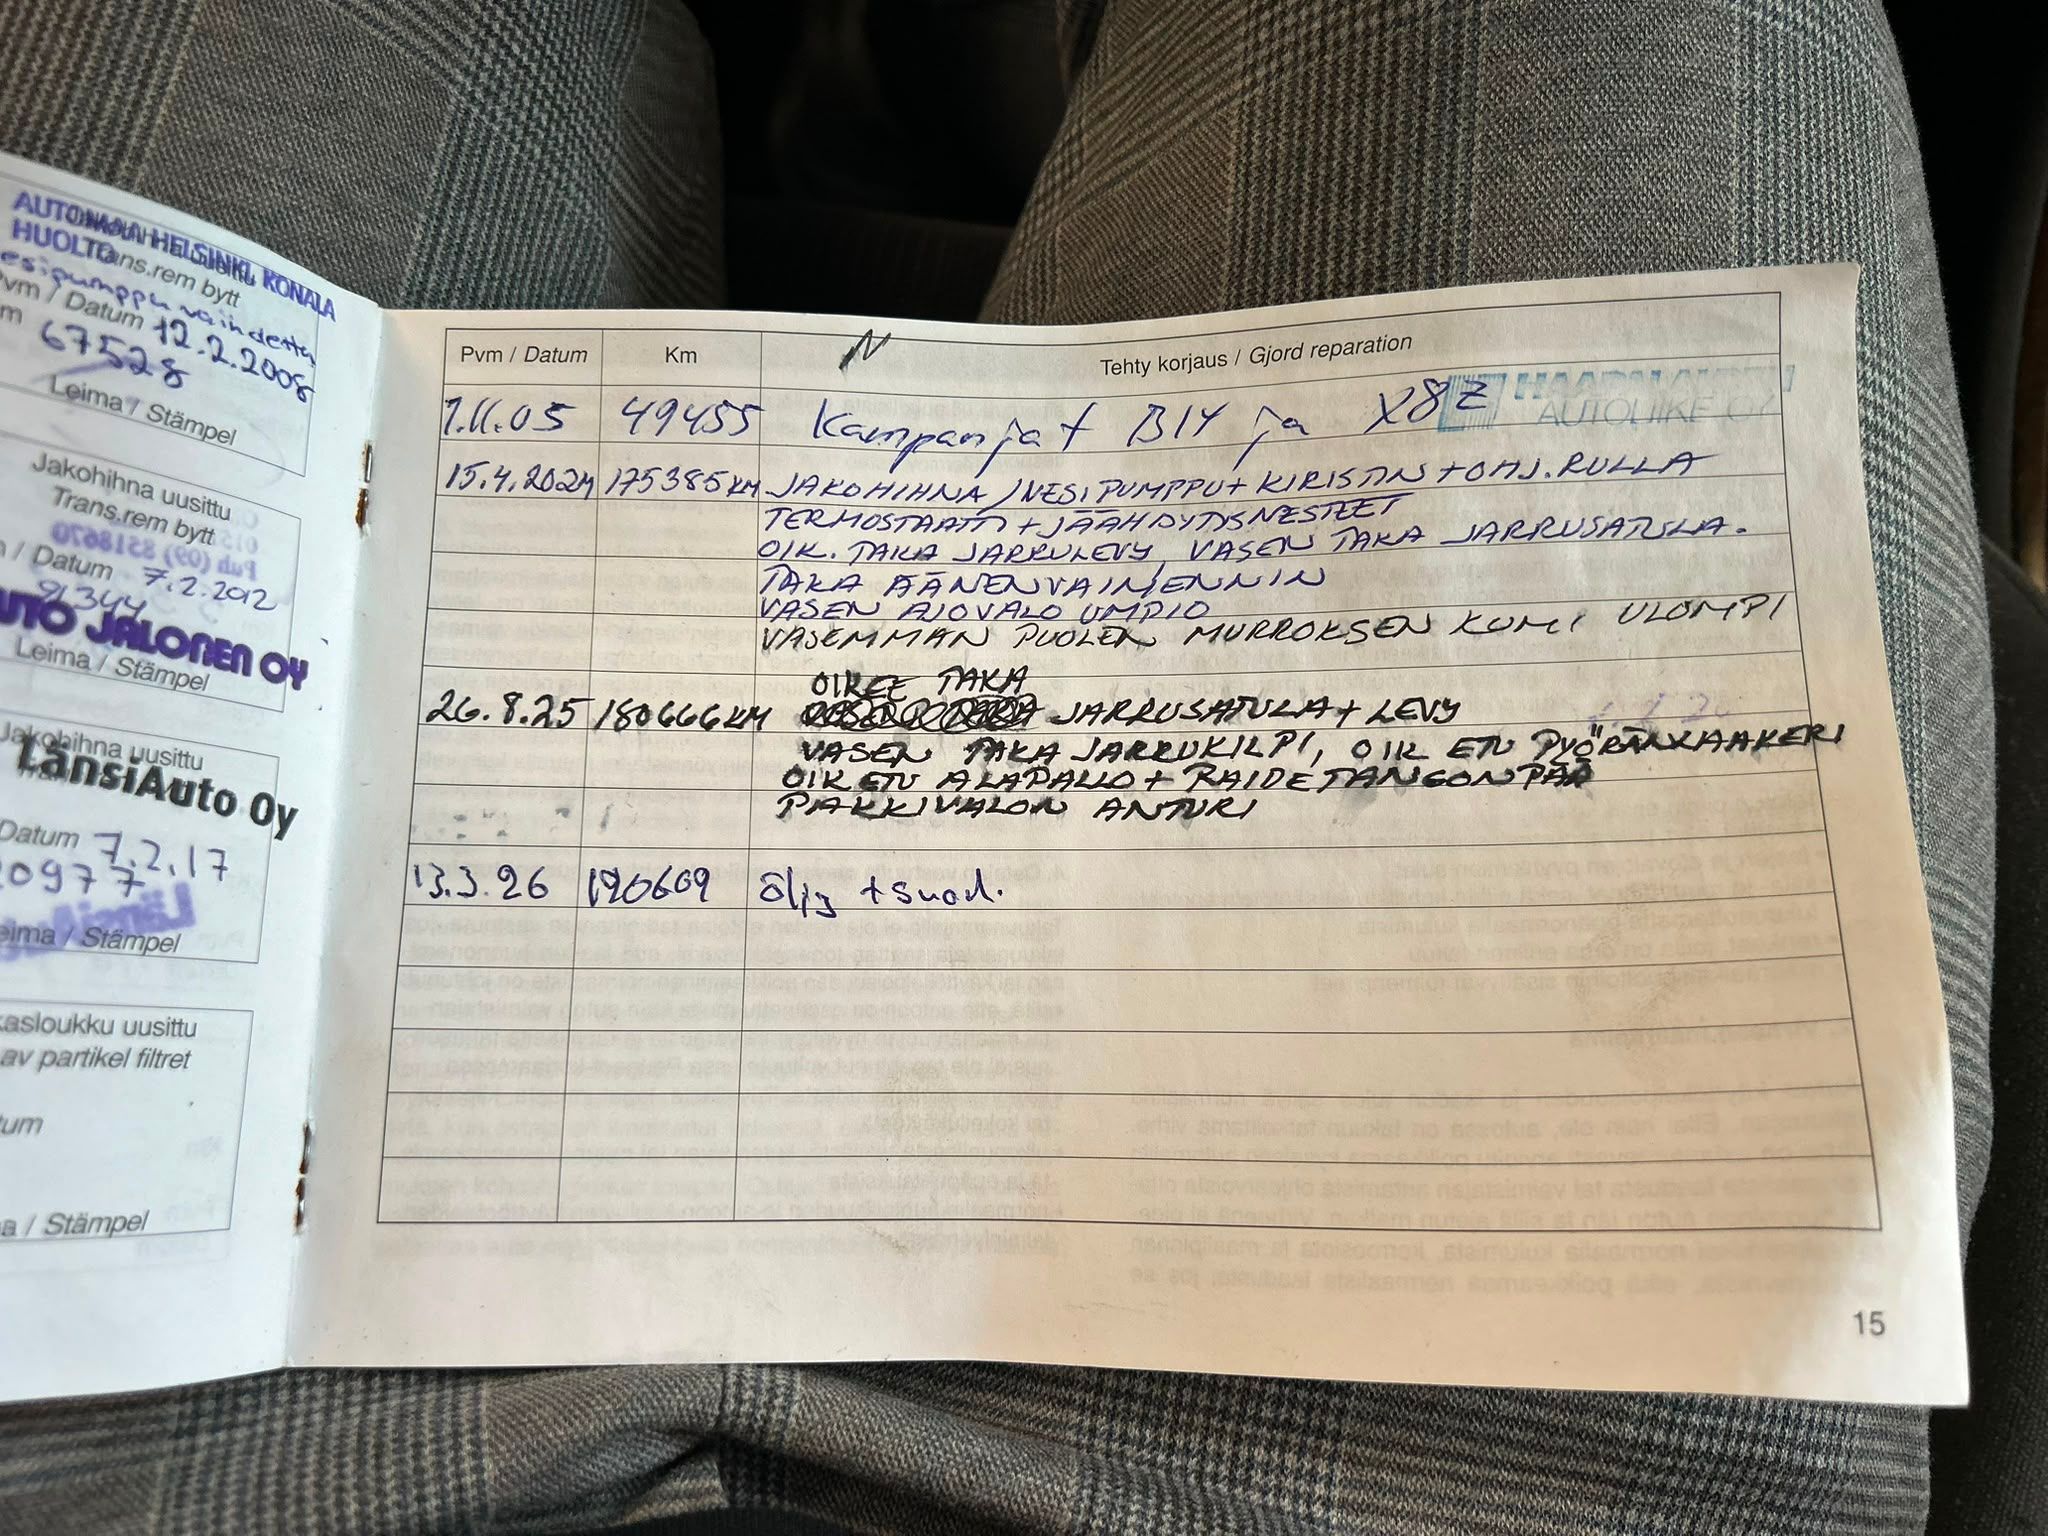 AUTOMAA HELSINKI KONALA
HUOLTO
Trans.rem bytt
vesipumppu vaihdettu
Pvm / Datum 12.2.2008
67528
Leima / Stämpel
Jakohihna uusittu
Trans.rem bytt
/ Datum 7.2.2012
91344
AUTO JALONEN OY
Leima / Stämpel
Jakohihna uusittu
LänsiAuto Oy
Datum 7.2.17
20977
Leima / Stämpel
uusittu
av partikel filtret
/ Stämpel
Pvm / Datum Km Tehty korjaus / Gjord reparation
1.11.05 49455 Kampanjat B1Y ja X8Z
AUTOLIIKE OY
15.4.2024 175385KM JAKOHIHNA / VESIPUMPPU + KIRISTIN + OHJ. RULLA
TERMOSTAATTI + JÄÄHDYTYSNESTEET
OIK. TAKA JARRULEVY, VASEN TAKA JARRUSATULA.
TAKA ÄÄNENVAIMENNIN
VASEN AJOVALO UMPIO
VASEMMAN PUOLEN MURROKSEN KUMI ULOMPI
OIKEE TAKA
26.8.25 180666KM JARRUSATULA + LEVY
VASEN TAKA JARRUKILPI, OIK ETU PYÖRÄNLAAKERI
OIK ETU ALAPALLO + RAIDETANGONPÄÄ
PAKKIVALON ANTURI
13.3.26 190609 Öljy + suod.
15